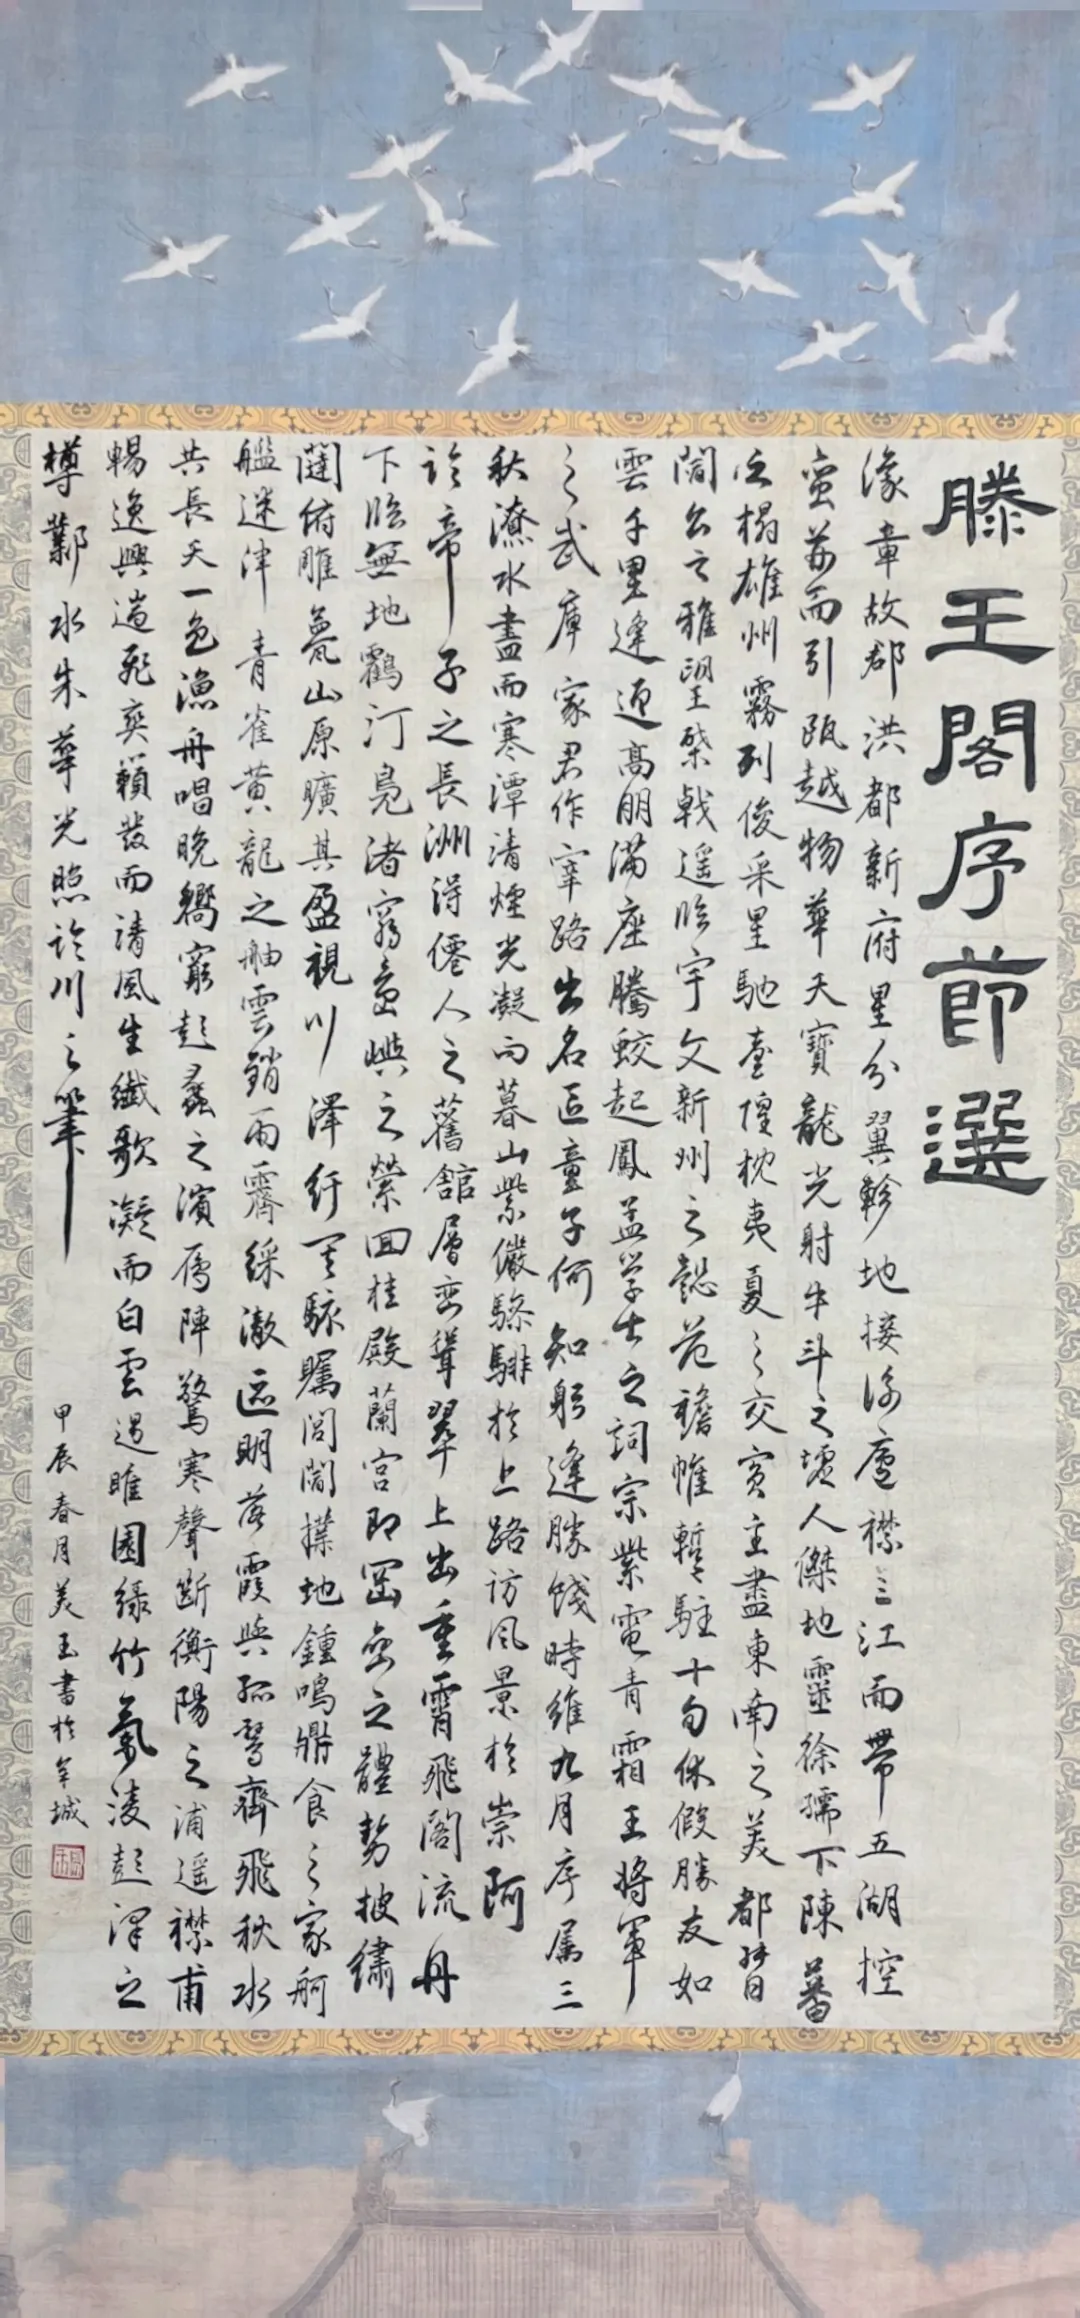 滕王閣序節選
豫章故郡洪都新府星分翼軫地接衡廬襟三江而帶五湖控
蠻荊而引甌越物華天寶龍光射牛斗之墟人傑地靈徐孺下陳蕃
之榻雄州霧列俊采星馳臺隍枕夷夏之交賓主盡東南之美都督
閻公之雅望棨戟遥臨宇文新州之懿范襜帷暫駐十旬休假勝友如
雲千里逢迎高朋滿座騰蛟起鳳孟學士之詞宗紫電青霜王將軍
之武庫家君作宰路出名區童子何知躬逢勝餞時維九月序属三
秋潦水盡而寒潭清煙光凝而暮山紫儼驂騑於上路訪風景於崇阿
臨帝子之長洲得僊人之舊館層巒聳翠上出重霄飛閣流丹
下臨無地鶴汀鳧渚窮島嶼之縈回桂殿蘭宮即岡巒之體勢披繡
闥俯雕甍山原曠其盈視川澤紆其駭矚閭閻撲地鍾鳴鼎食之家舸
艦迷津青雀黃龍之舳雲銷雨霽綵澈區明落霞與孤鶩齊飛秋水
共長天一色漁舟唱晚響窮彭蠡之濱雁陣驚寒聲斷衡陽之浦遥襟甫
暢逸興遄飛爽籟發而清風生纖歌凝而白雲遏睢園綠竹氣淩彭澤之
樽鄴水朱華光照臨川之筆
甲辰春月美玉書於羊城